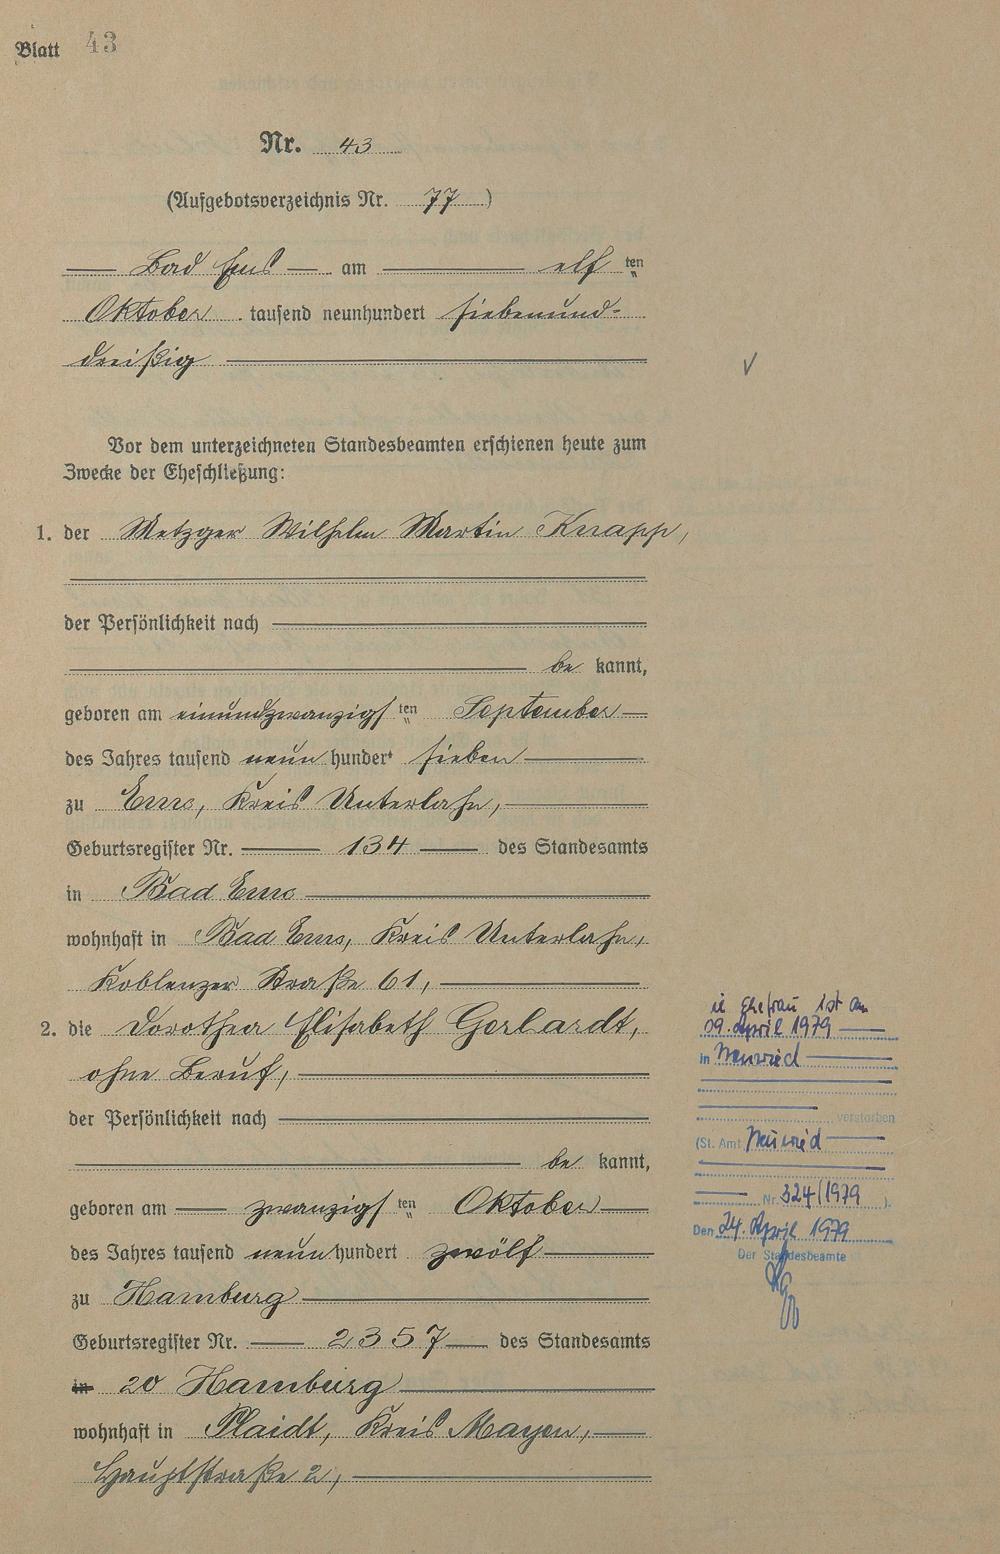 Blatt 43
Nr. 43
(Aufgebotsverzeichnis Nr. 77)
Bad Ems am elf ten
Oktober tausend neunhundert siebenund-
dreißig
Vor dem unterzeichneten Standesbeamten erschienen heute zum
Zwecke der Eheschließung:
1. der Metzger Wilhelm Martin Knapp,
der Persönlichkeit nach
be kannt,
geboren am einundzwanzigs ten September
des Jahres tausend neun hundert sieben
zu Ems, Kreis Unterlahn,
Geburtsregister Nr. 134 des Standesamts
in Bad Ems
wohnhaft in Bad Ems, Kreis Unterlahn,
Koblenzer Straße 61,
2. die Dorothea Elisabeth Gerlardt,
ohne Beruf,
der Persönlichkeit nach
be kannt,
geboren am zwanzigs ten Oktober
des Jahres tausend neun hundert zwölf
zu Hamburg
Geburtsregister Nr. 2357 des Standesamts
in 20 Hamburg
wohnhaft in Plaidt, Kreis Mayen,
Hauptstraße 2,
Ehefrau ist am
09. April 1979
in Neuwied
verstorben
(St. Amt Neuwied
Nr. 324/1979 ).
Den 24. April 1979
Der Standesbeamte